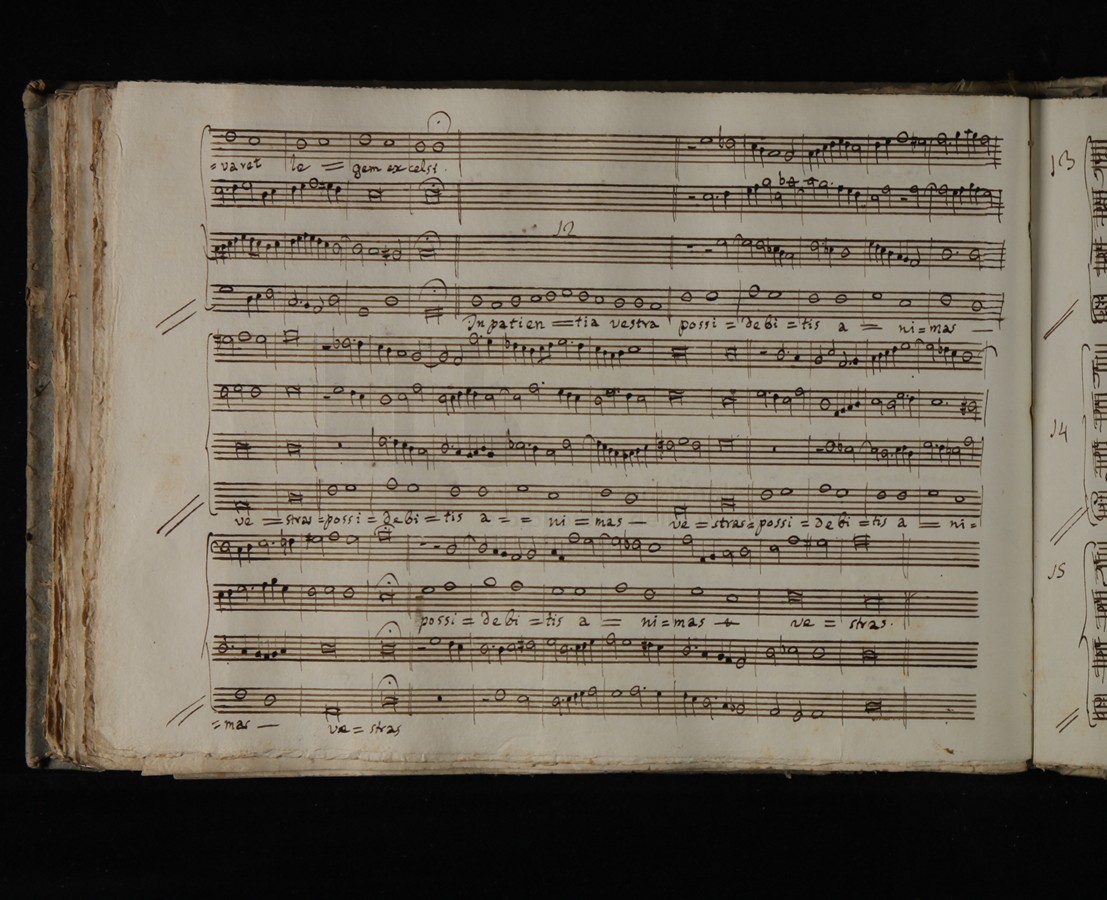 =varet le = gem excelsi.
12
In patien = tia vestra possi = debi = tis a = ni=mas —
ve = stras=possi = debi = tis a = = ni = mas — ve = stras=possi = debi = tis a = ni=
possi = debi = tis a = ni=mas ve = stras.
=mas — ve = stras
13
14
15